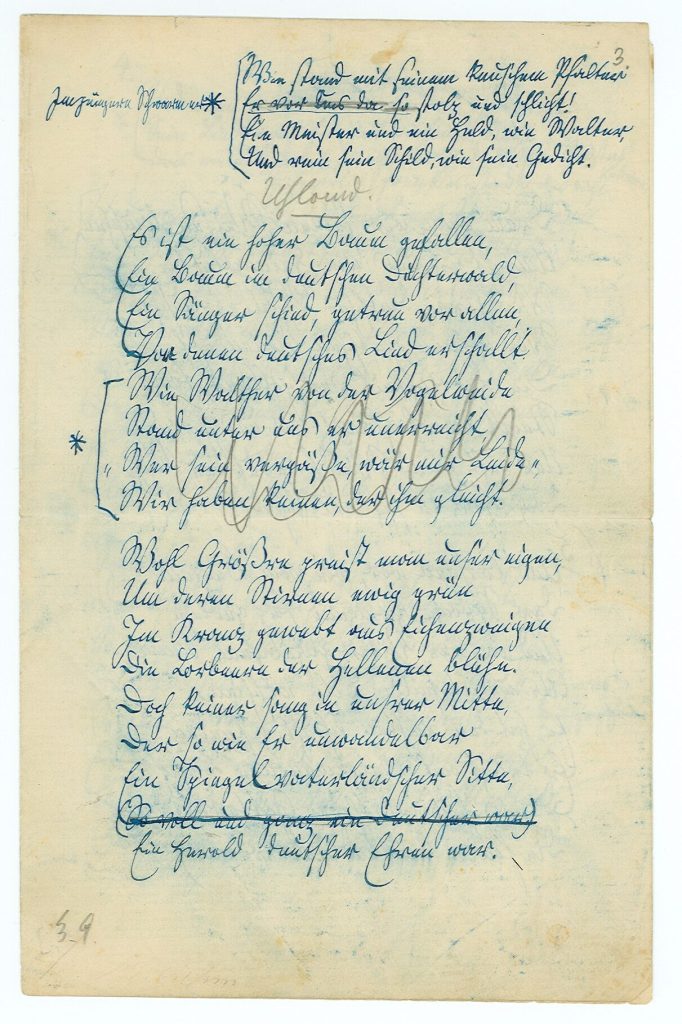 3
Wie stand mit seinem keuschem Psalter
Er vor uns da so stolz und schlicht!
Im jüngern Schwarmer *
Ein Meister und ein Held, wie Walter,
Und rein sein Schild, wie sein Gedicht.
Uhland.
Es ist ein hoher Baum gefallen,
Ein Baum im deutschen Dichterwald,
Ein Sänger schied, getreu vor allen,
Von denen deutsches Lied erschallt.
Wie Walther von der Vogelweide
Stand unter uns er unerreicht
* „Wer sein vergäße, wär mir Leide",
Wir haben keinen, der ihm gleicht.
Wohl Größre preist man unser eigen,
Um deren Stirnen ewig grün
Im Kranz gewebt aus Eichenzweigen
Die Lorbeern der Hellenen blühn.
Doch keiner sang in unsrer Mitte,
Der so wie Er unwandelbar
Ein Spiegel vaterländscher Sitte,
(So voll und ganz ein Deutscher war)
Ein Herold deutscher Ehren war.
39